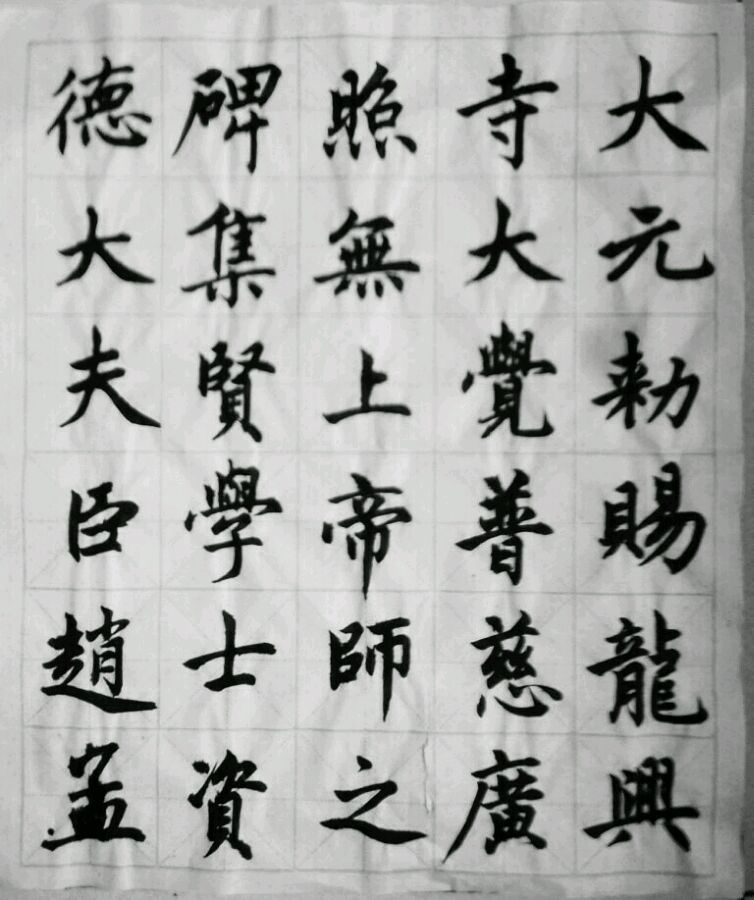 大元勑賜龍興
寺大覺普慈廣
照無上帝師之
碑集賢學士資
德大夫臣趙孟